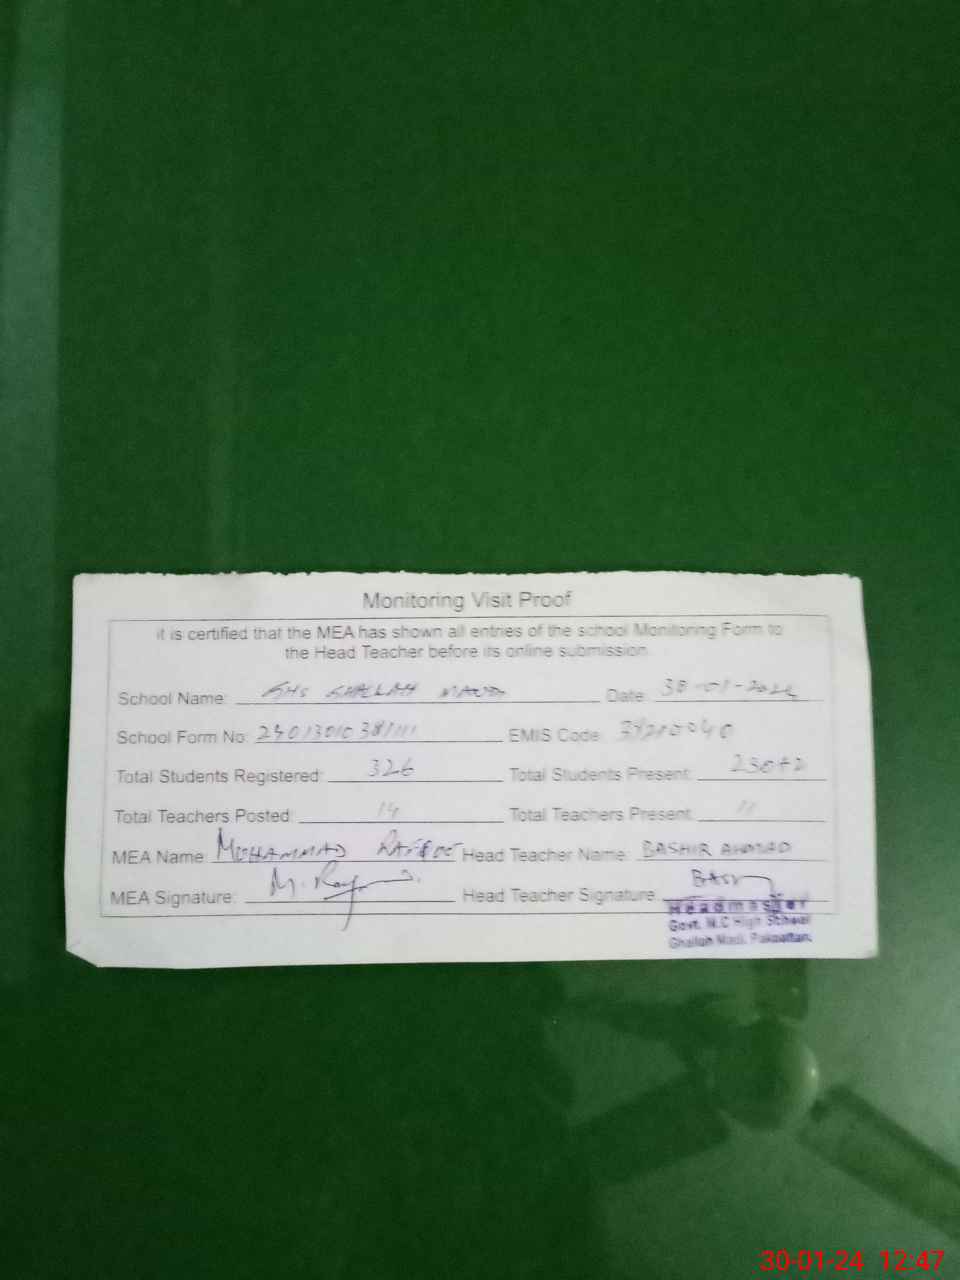 Monitoring Visit Proof
it is certified that the MEA has shown all entries of the school Monitoring Form to
the Head Teacher before its online submission
School Name: GHS GHALLAH MANDI Date: 30-01-2024
School Form No: EMIS Code:
Total Students Registered: 326 Total Students Present: 230+2
Total Teachers Posted: 14 Total Teachers Present: 11
MEA Name: MUHAMMAD Head Teacher Name: BASHIR AHMAD
MEA Signature: Head Teacher Signature:
Headmaster
Govt. M.C High School
Ghallah Mandi, Pakpattan.
30-01-24 12:47